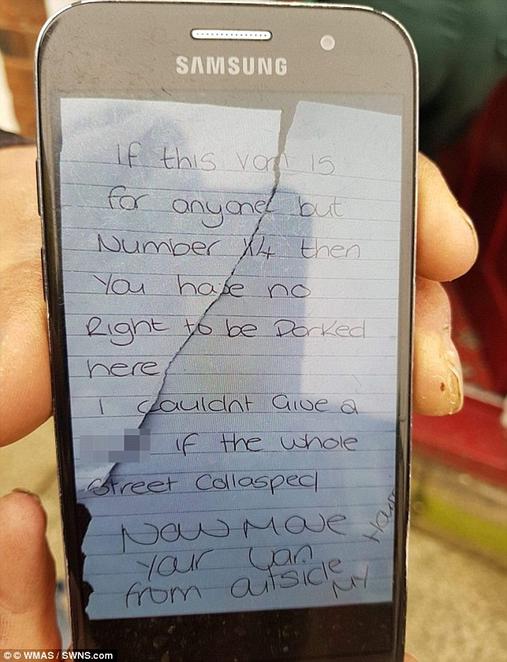 SAMSUNG
If this van is
for anyone but
Number 14 then
You have no
Right to be Parked
here
I couldnt Give a
if the whole
Street Collasped
Now Move
Your Van
from outside MY
House
© WMAS / SWNS.com